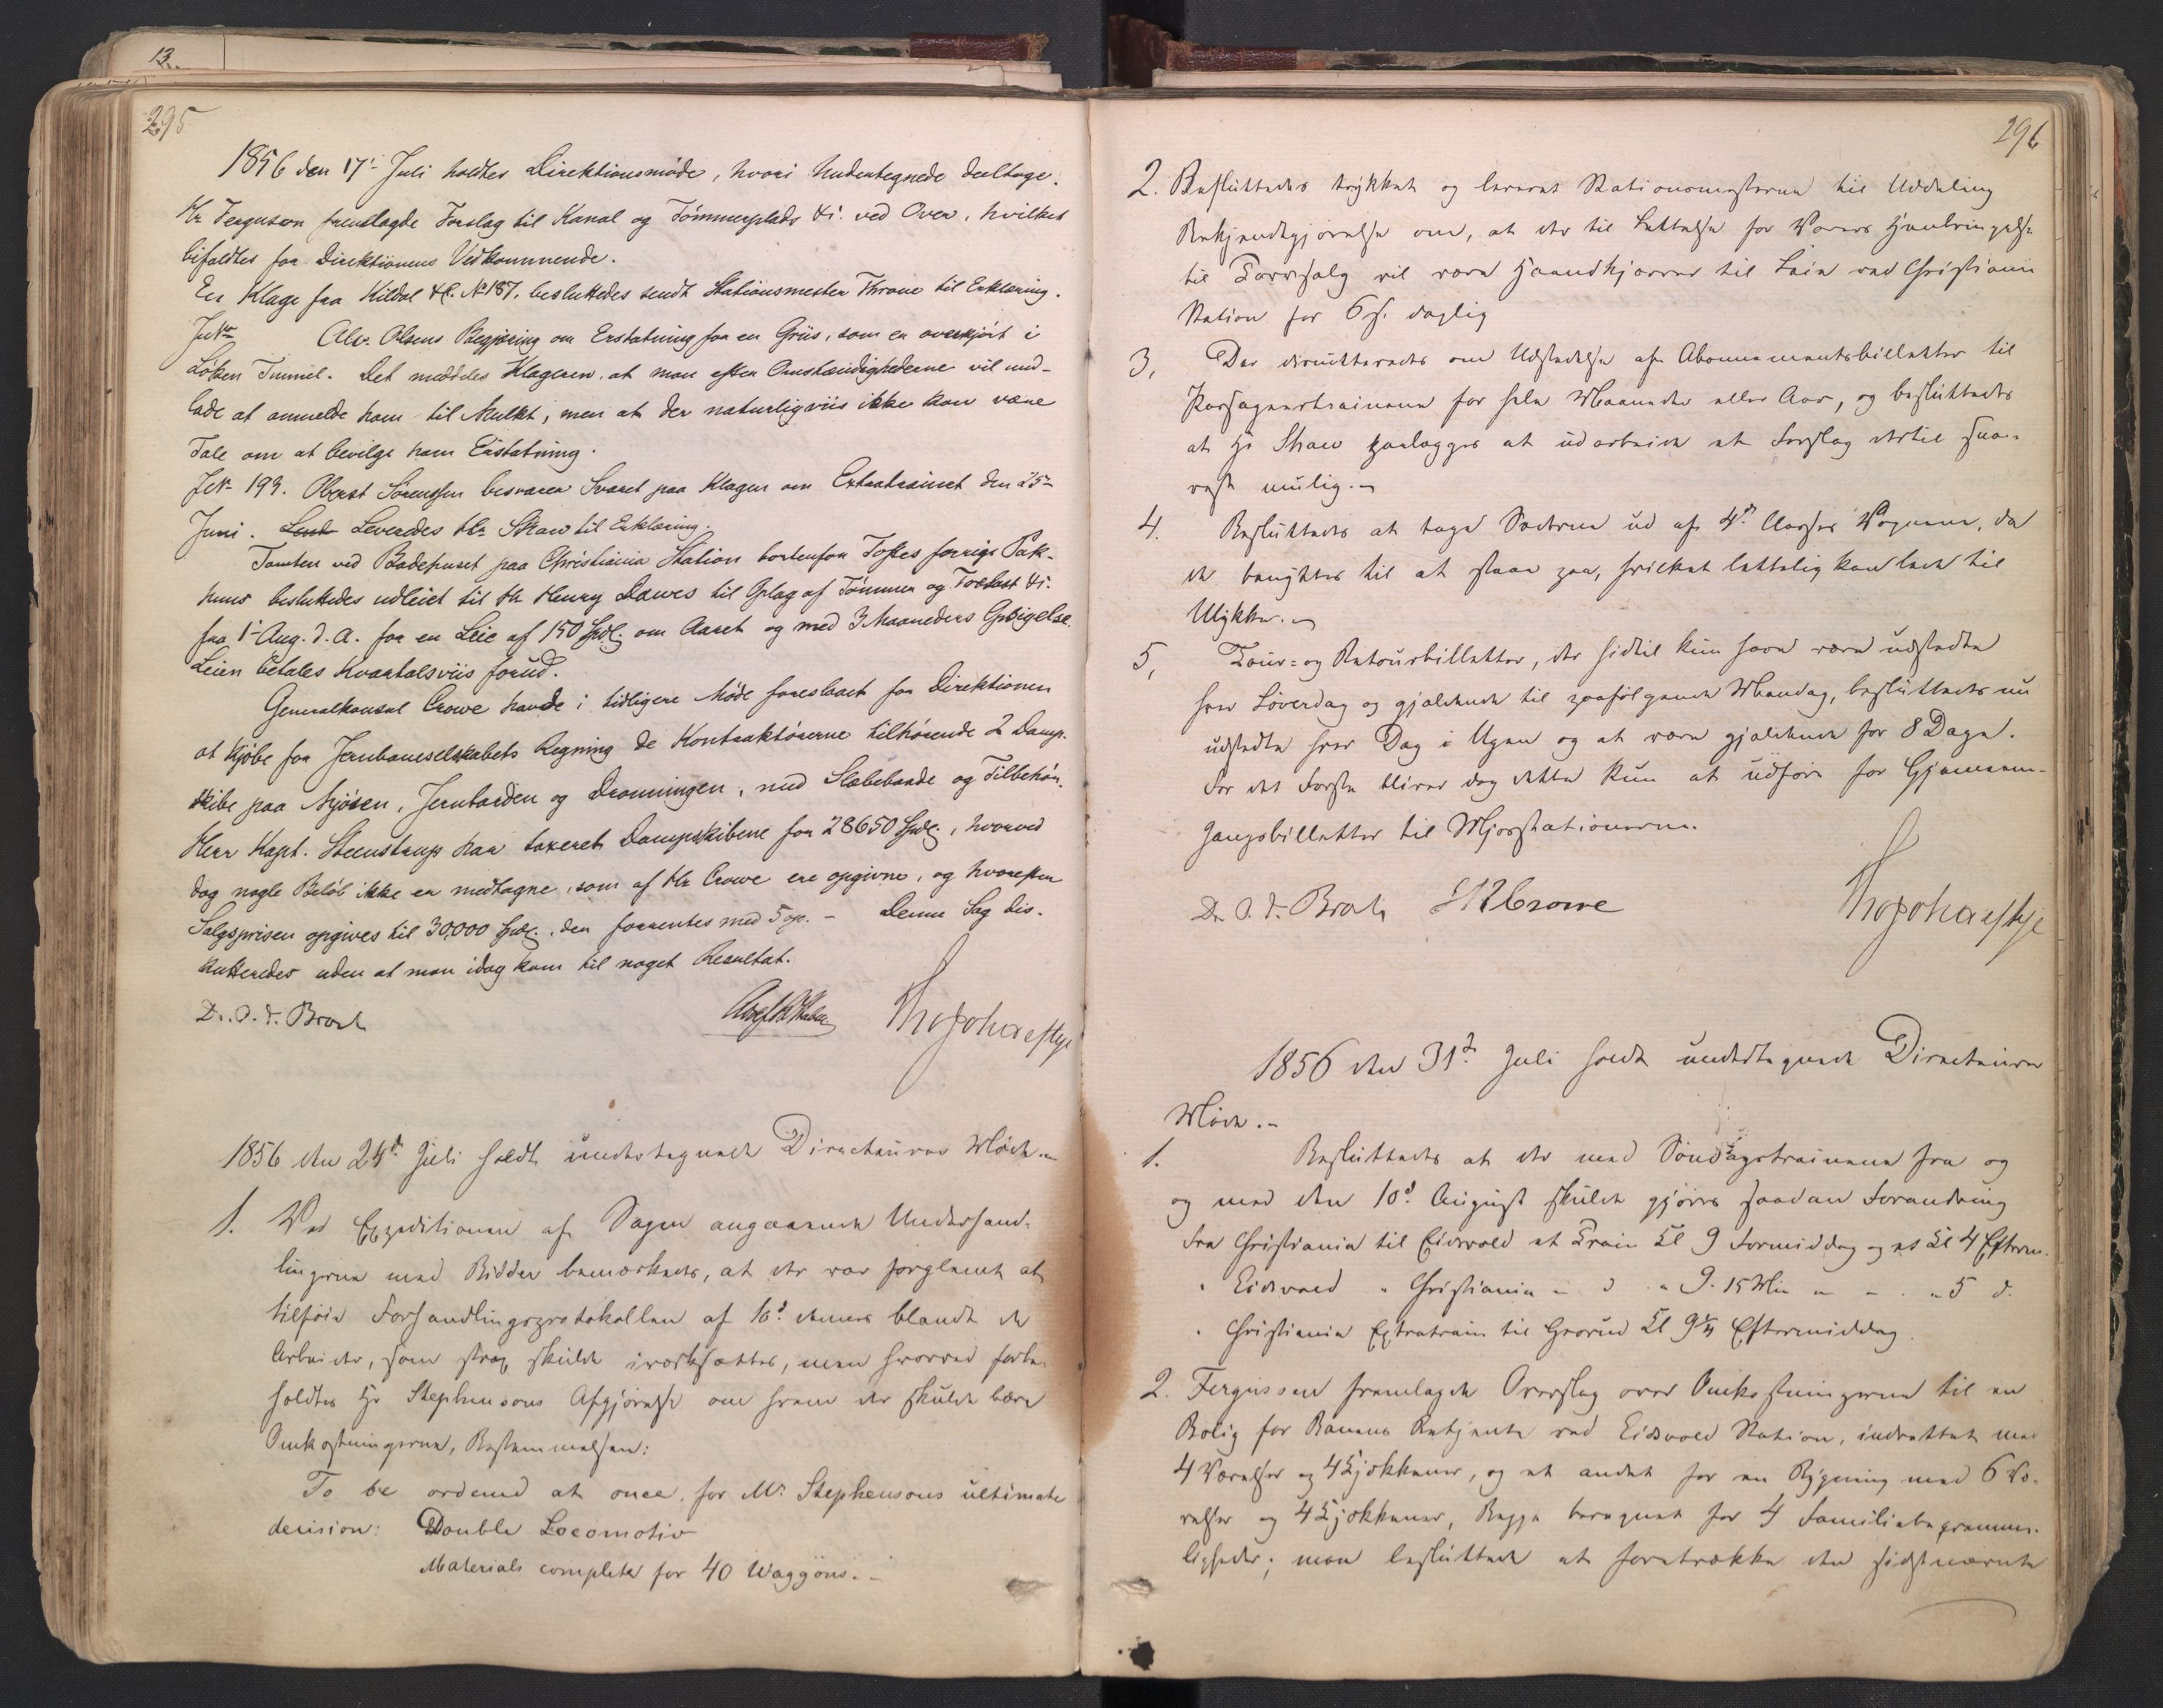 13.
295
1856 den 17de Juli holdtes Direktionsmöde, hvori Undertegnede deeltoge.
Hr Ferguson fremlagde Forslag til Kanal og Tömmerplads &c. ved Oven, hvilket
bifaldtes for Direktionens Vidkommende.
En Klage fra Kildal &C. No 187. besluttedes sendt Stationsmester Throne til Erklæring.
JNr Alv. Olsens Begjæring om Erstatning for en Griis, som er overkjört i
Loken Tunnel. Det meddeles Klageren, at man efter Omstændighederne vil und-
lade at anmelde ham til Mulkt, men at der naturligviis ikke kan være
Tale om at bevilge ham Erstatning.
JNr 193. Oberst Sörensen besvarer Svaret paa Klagen om Extratrainet den 25de
Juni. Leveredes Hr. Shaw til Erklæring.
Tomten ved Badehuset paa Christiania Station bortenfor Toftes forrige Pak-
huus besluttedes udleiet til Hr Henry Dawes til Oplag af Tömmer og Trælast &c.
fra 1 Aug. d. A. for en Leie af 150 Spdl. om Aaret og med 3 Maaneders Opsigelse.
Leien betales Kvartalsviis forud.
Generalkonsul Crowe havde i tidligere Möde foreslaaet for Direktionen
at kjöbe for Jernbaneselskabets Regning de Kontraktörerne tilhörende 2 Damp-
skibe paa Mjösen, Jernbarden og Dronningen, med Slæbebaade og Tilbehör.
Herr Kapt. Steenstrup har taxeret Dampskibene for 28650 Spdl., hvorved
dog nogle Belöb ikke er medtagne, som af Hr Crowe ere opgivne, og hvorefter
Salgsprisen opgives til 30,000 Spdl., der forrentes med 5 op. – Denne Sag dis-
kutteredes uden at man idag kom til noget Resultat.
Dr. O. J. Broch Thos Joh Heftye
1856 den 24de Juli holdt undertegnede Directeurer Möde.
1. Ved Expeditionen af Sagen angaaende Underhand-
lingerne med Bidder bemærkedes, at der var forglemt at
tilföie Forhandlingsprotokollen af 16de dennes blandt de
Arbeider, som strax skulde iværksættes, men hvorved forbe-
holdtes Hr Stephensons Afgjörelse om hvem der skulde bære
Omkostningerne, Bestemmelsen:
To be ordered at once, for Mr. Stephensons ultimate
decision: Double Locomotiv
Materials complete for 40 Waggons. –
296
2. Besluttedes trykket og leveret Stationsmesterne til Uddeling
Bekjendtgjörelse om, at der til Lettelse for Varers Henbringelse
til Torvesalg vil være Haandkjærrer til Leie ved Christiania
Station for 6 s. daglig
3, Der discutteredes om Udstedelse af Abonnementsbilletter til
Passagertrainene for hele Maaneder eller Aar, og besluttedes
at Hr Shaw paalægges at udarbeide et Forslag dertil snar-
rest mulig. –
4. Besluttedes at tage Dörrene ud af 4de Classes Vognene, da
de benyttes til at staae paa, hvilket lettelig kan lede til
Ulykker. –
5, Tour- og Retourbilletter, der hidtil kun have været udstedte
hver Löverdag og gjældende til paafölgende Mandag, besluttedes nu
udstedte hver Dag i Ugen og at være gjældende for 8 Dage.
For det Förste bliver dog dette kun at udföre for Gjennem-
gangsbilletter til Mjösstationerne.
Dr. O. J. Broch J R Crowe Thos Joh Heftye
1856 den 31te Juli holdt undertegnede Directeurer
Möde. –
1. Besluttedes at der med Söndagstrainene fra og
og med den 10de August skulde gjöres saadan Forandring
Fra Christiania til Eidsvold et Train Kl 9 Formiddag og et Kl 4 Efterm.
" Eidsvold " Christiania " d " 9. 15 Min " " " 5 d.
" Christiania Extratrain til Grorud Kl 9¼ Eftermiddag.
2. Fergusson fremlagde Overslag over Omkostningerne til en
Bolig for Banens Betjente ved Eidsvold Station, indrettet med
4 Værelser og 4 Kjökkener, og et andet for en Bygning med 6 Væ-
relser og 4 Kjökkener, Begge beregnet for 4 Familiebequemme-
ligheder; man besluttede at foretrække den sidstnævnte